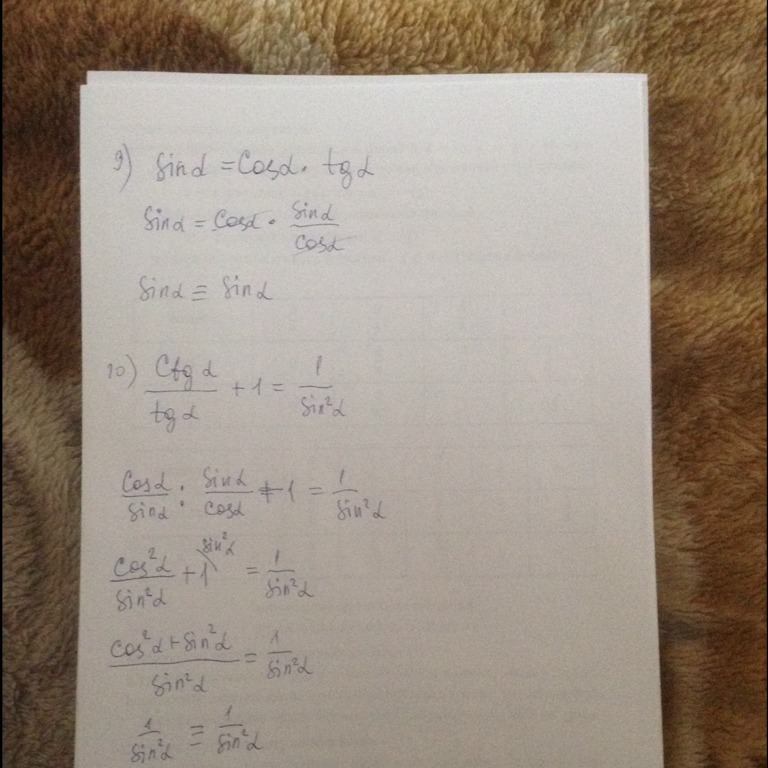 9) sinα = cosα · tgα
sinα = cosα · sinα/cosα
sinα ≡ sinα
10) ctgα/tgα + 1 = 1/sin²α
cosα/sinα : sinα/cosα + 1 = 1/sin²α
cos²α/sin²α + 1 sin²α = 1/sin²α
cos²α + sin²α/sin²α = 1/sin²α
1/sin²α ≡ 1/sin²α